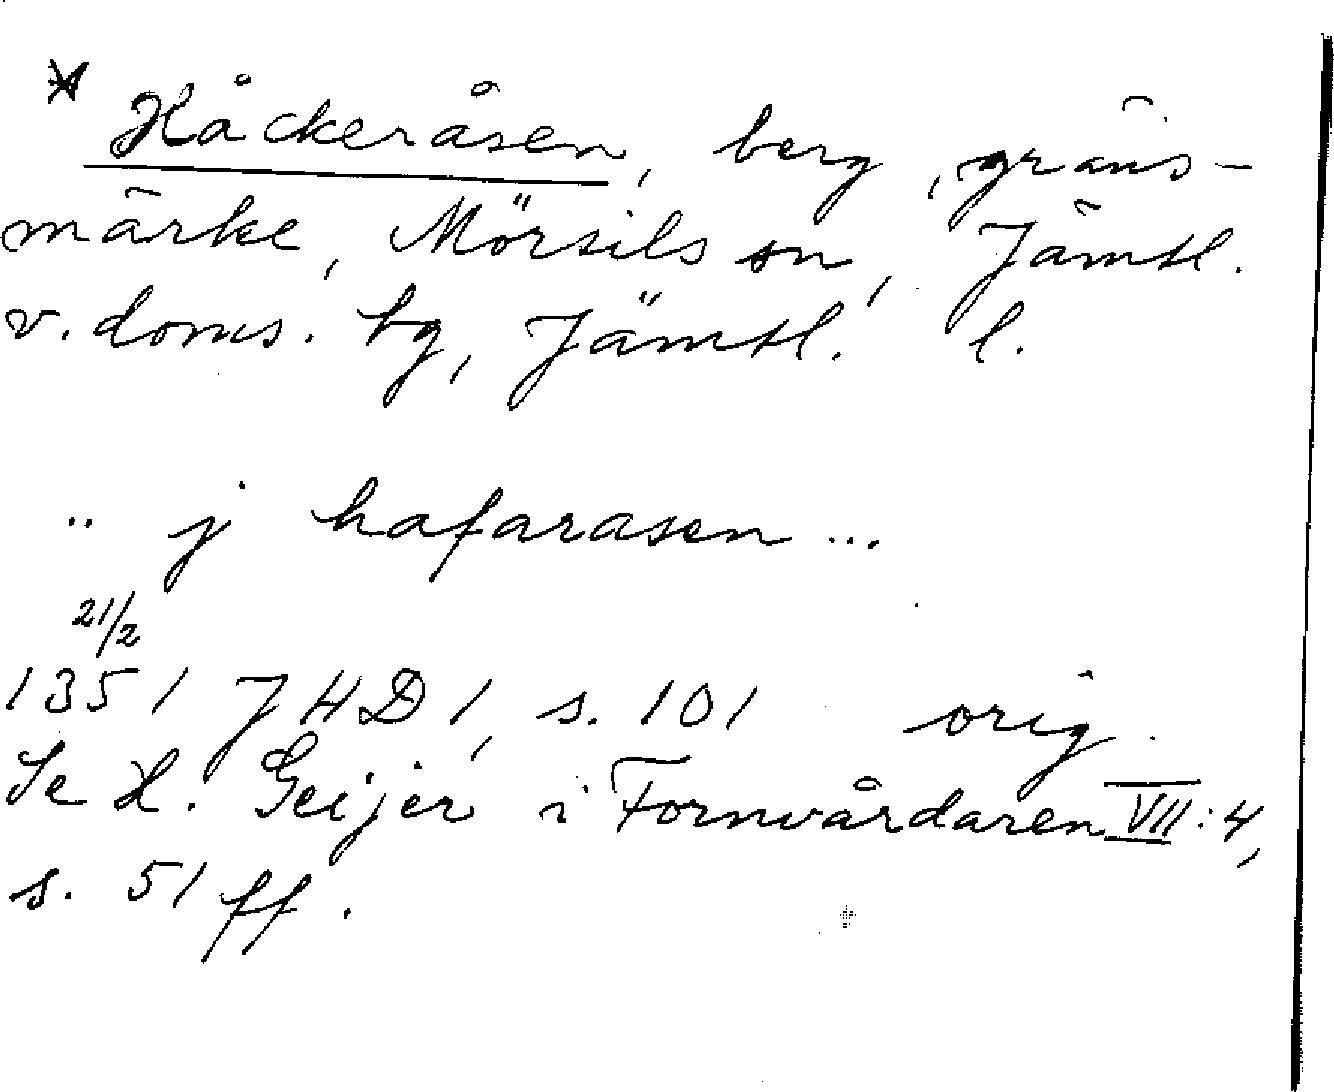 * Håckeråsen, berg, gräns-
märke, Mörsils sn, Jämtl.
v. doms. bg, Jämtl. l.
.. j hafarasen ...
21/2
1351 JHD 1, s. 101 orig.
Se H. Geijer i Fornvårdaren VII:4,
s. 51 ff.